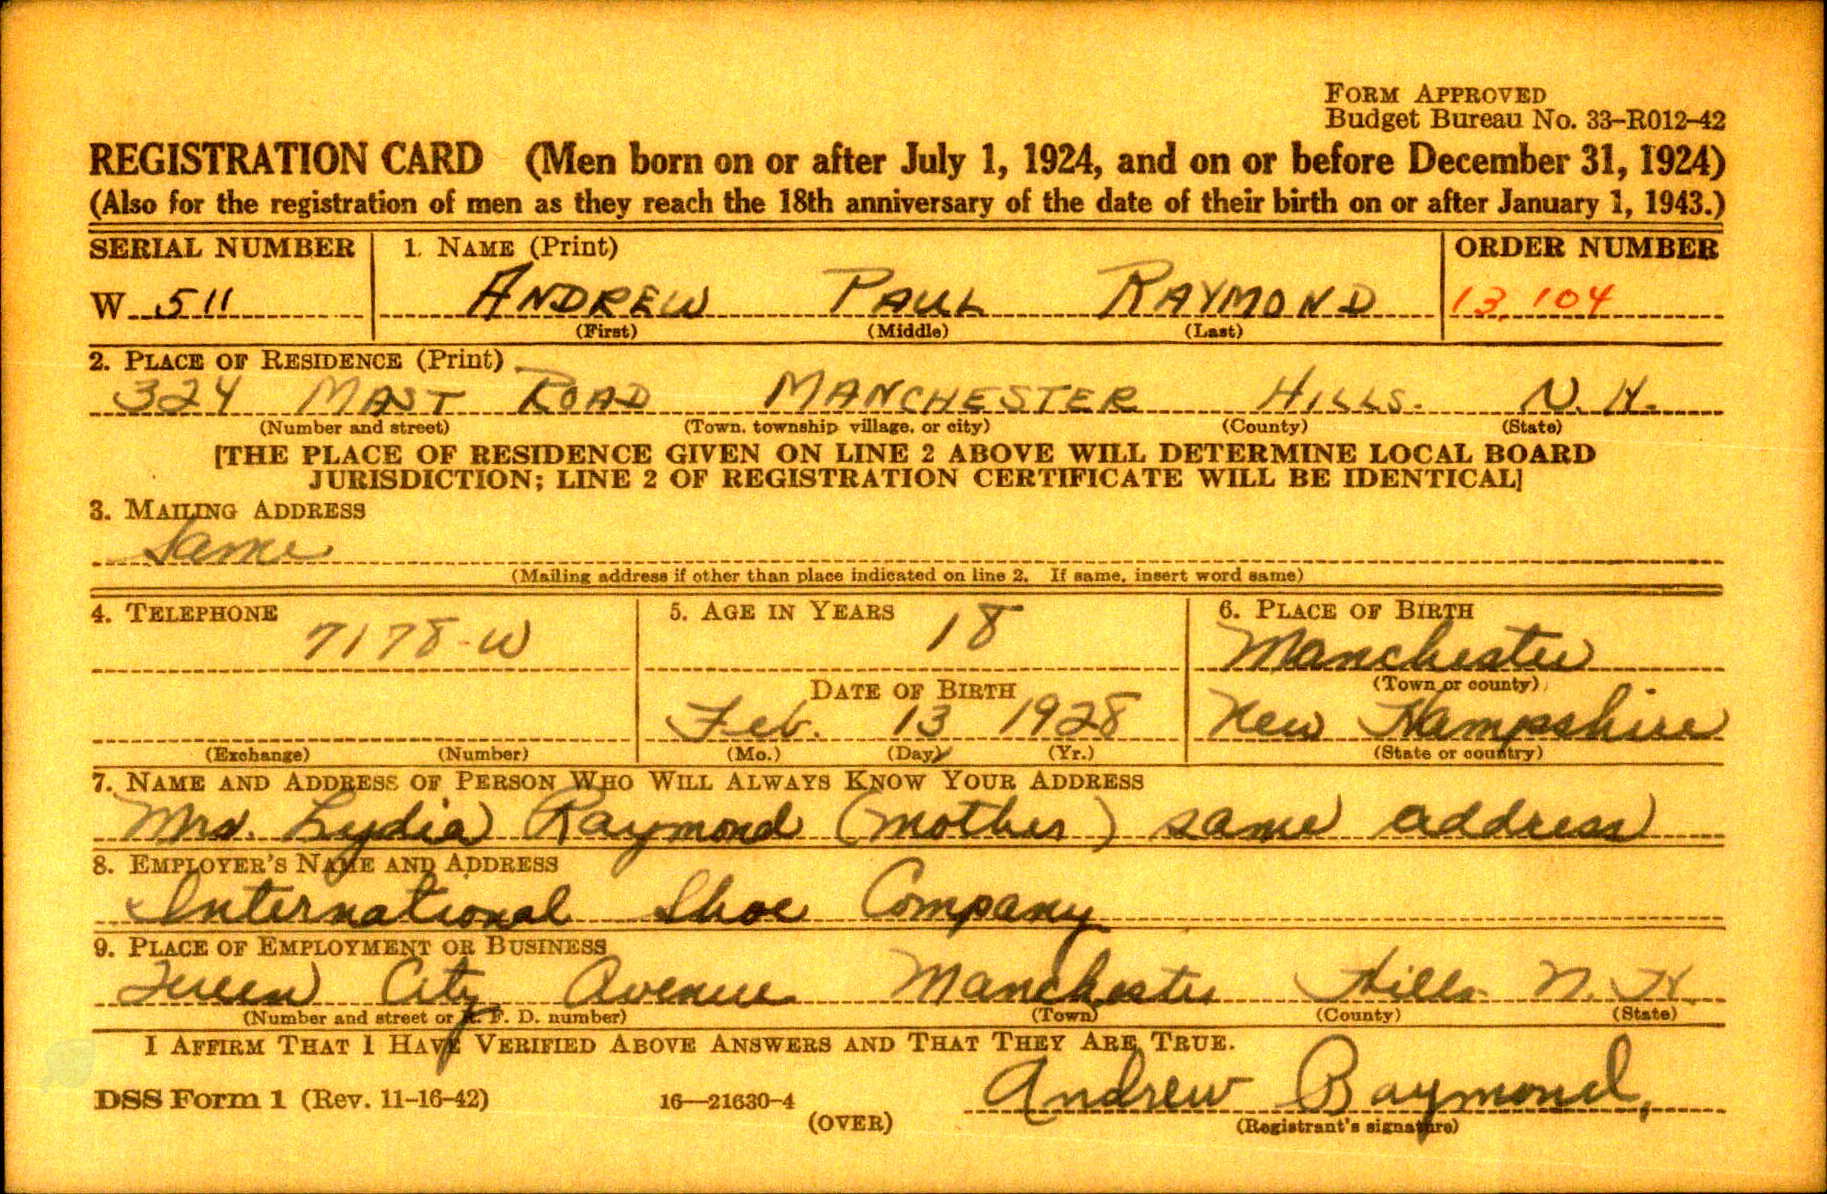 FORM APPROVED
Budget Bureau No. 33-R012-42
REGISTRATION CARD (Men born on or after July 1, 1924, and on or before December 31, 1924)
(Also for the registration of men as they reach the 18th anniversary of the date of their birth on or after January 1, 1943.)
SERIAL NUMBER 1. NAME (Print) ORDER NUMBER
W 511 ANDREW PAUL RAYMOND 13,104
(First) (Middle) (Last)
2. PLACE OF RESIDENCE (Print)
324 MAST ROAD MANCHESTER HILLS. N.H.
(Number and street) (Town, township village, or city) (County) (State)
[THE PLACE OF RESIDENCE GIVEN ON LINE 2 ABOVE WILL DETERMINE LOCAL BOARD
JURISDICTION; LINE 2 OF REGISTRATION CERTIFICATE WILL BE IDENTICAL]
3. MAILING ADDRESS
Same
(Mailing address if other than place indicated on line 2. If same, insert word same)
4. TELEPHONE 5. AGE IN YEARS 6. PLACE OF BIRTH
7178-W 18 Manchester
(Town or county)
DATE OF BIRTH
Feb. 13 1928 New Hampshire
(Exchange) (Number) (Mo.) (Day) (Yr.) (State or country)
7. NAME AND ADDRESS OF PERSON WHO WILL ALWAYS KNOW YOUR ADDRESS
Mrs. Lydia Raymond (mother) same address
8. EMPLOYER'S NAME AND ADDRESS
International Shoe Company
9. PLACE OF EMPLOYMENT OR BUSINESS
Queen City Avenue Manchester Hills N.H.
(Number and street or R. F. D. number) (Town) (County) (State)
I AFFIRM THAT I HAVE VERIFIED ABOVE ANSWERS AND THAT THEY ARE TRUE.
DSS Form 1 (Rev. 11-16-42) 16—21630-4 Andrew Raymond.
(OVER) (Registrant's signature)